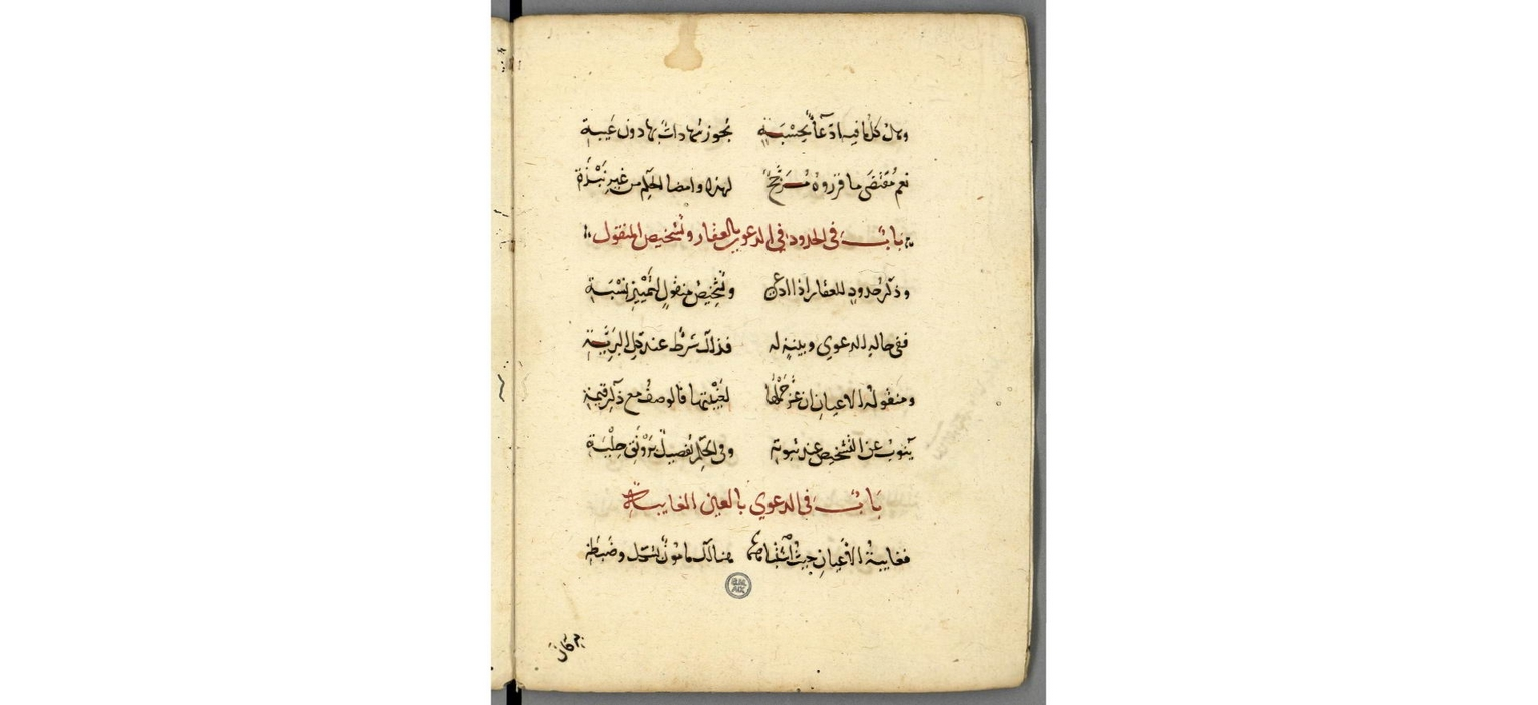 وهل كل ما فيه ادّعاءٌ بحِسْبَةٍ يجوز شهادات بها دون غَيبة
نعم مُقتضَى ما قرروه مُرَجَّحٌ لهذا وامضا الحكم من غيرِ نَبْذَة
بابٌ في الحدود في الدعوي بالعقار وتشخيص المنقول
وذكر حُدودٍ للعقار اذا ادعي وتشخِيصُ منقولٍ لتمْييزِ نِسْبَة
ففي حالة الدعوي وبينة له فذاك شَرطٌ عند كل البَرِيَّة
ومنقولة الاعيانِ ان عَزَّ حَمْلُها لغَيْبتها فالوصفُ مع ذكرِ قيمة
يَنوبُ عن التشخيص عند ثبوته وفي الحكم تفصيلٌ برَوْنَقِ حِلْيَة
بَابٌ في الدعوي بالعين الغايبة
فغايبةُ الأعيانِ حيث هنالك مامونٌ وضَبْطَة
فان كان